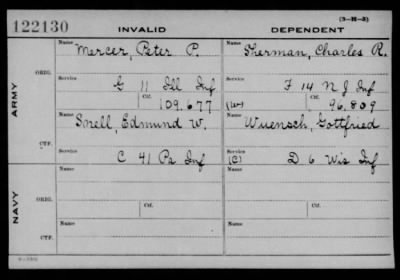 (3—H—3)
122130 INVALID DEPENDENT
Name Mercer, Peter P. Name Sherman, Charles R.
ORIG.
Service G 11 Ill Inf Service F 14 N J Inf
Ctf. 109.677 (W) Ctf. 96.809
ARMY
Name Snell, Edmund W. Name Wuensch, Gottfried
CTF.
Service C 41 Pa Inf Service (C) D 6 Wis Inf
Name Name
NAVY
ORIG.
Ctf. Ctf.
Name Name
CTF.